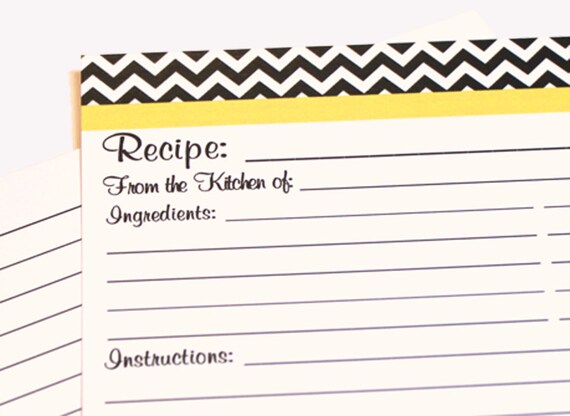 Recipe:
From the Kitchen of:
Ingredients:
Instructions: